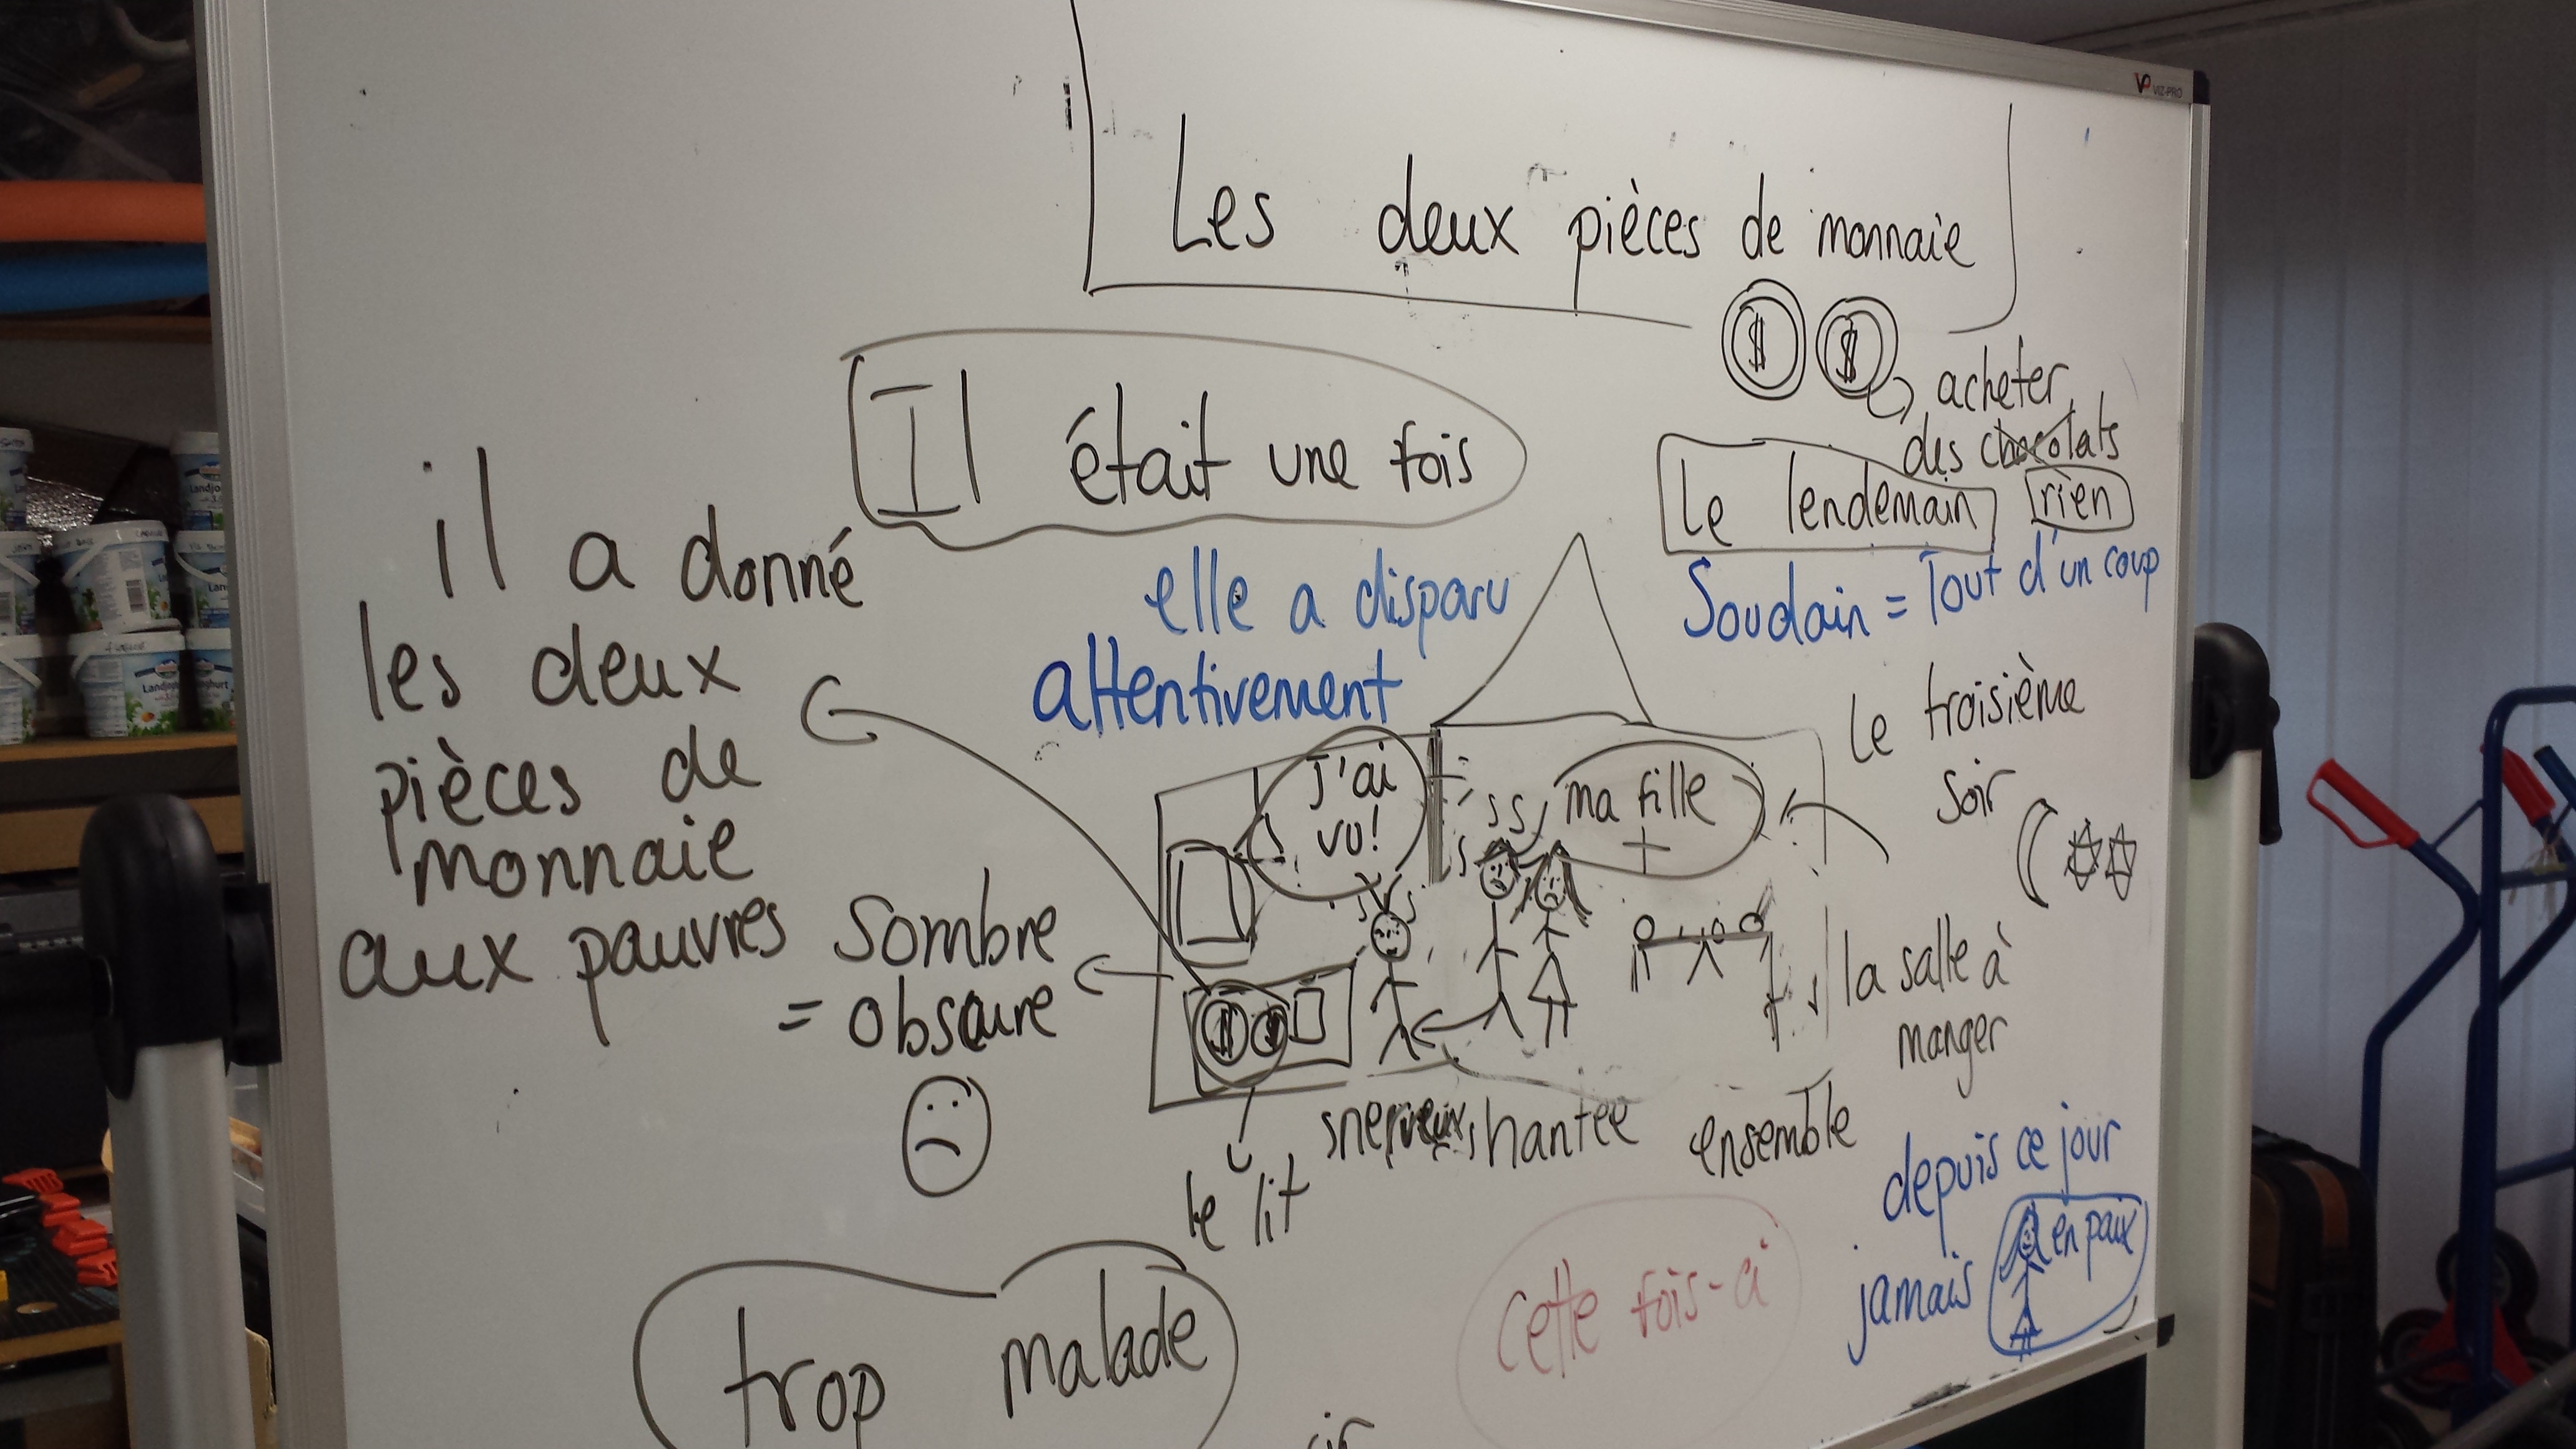 VIZ-PRO
Les deux pièces de monnaie
$ $
acheter
des chocolats
rien
Il était une fois
Le lendemain
Soudain = Tout d'un coup
il a donné
les deux
pièces de
monnaie
aux pauvres
elle a disparu
attentivement
le troisième
soir
J'ai
vu!
ma fille
+
sombre
= obscure
la salle à
manger
le lit
hantée
ensemble
depuis ce jour
jamais
en paix
trop malade
cette fois-ci